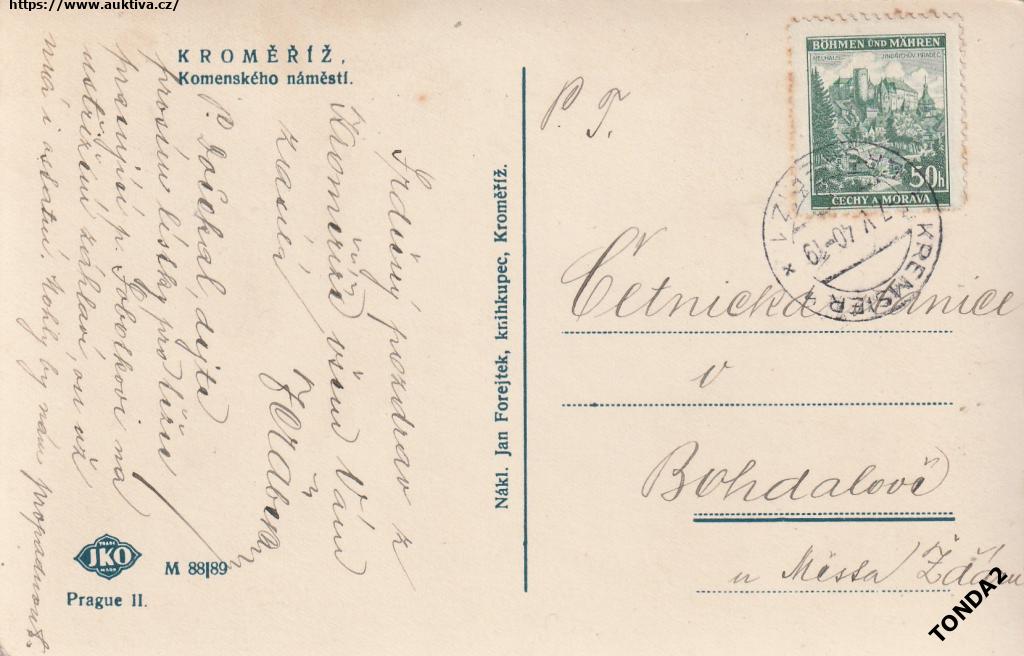 https://www.auktiva.cz/
KROMĚŘÍŽ.
Komenského náměstí.
Srdečný pozdrav z
Kroměříže všem Vám
P. Dočkal, dejte
prosím lístky pro
p. Tobolkovi na
on už
má i ostatní. Mohly by nám propadnout.
JKO
M 88|89
Prague II.
Nákl. Jan Forejtek, knihkupec, Kroměříž.
P. T.
BÖHMEN UND MÄHREN
NEUHAUS JINDŘICHŮV HRADEC
50h
ČECHY A MORAVA
KREMSIER 1
V 40-19
Četnická stanice
v
Bohdalově
u Města Žďáru
TONDA2